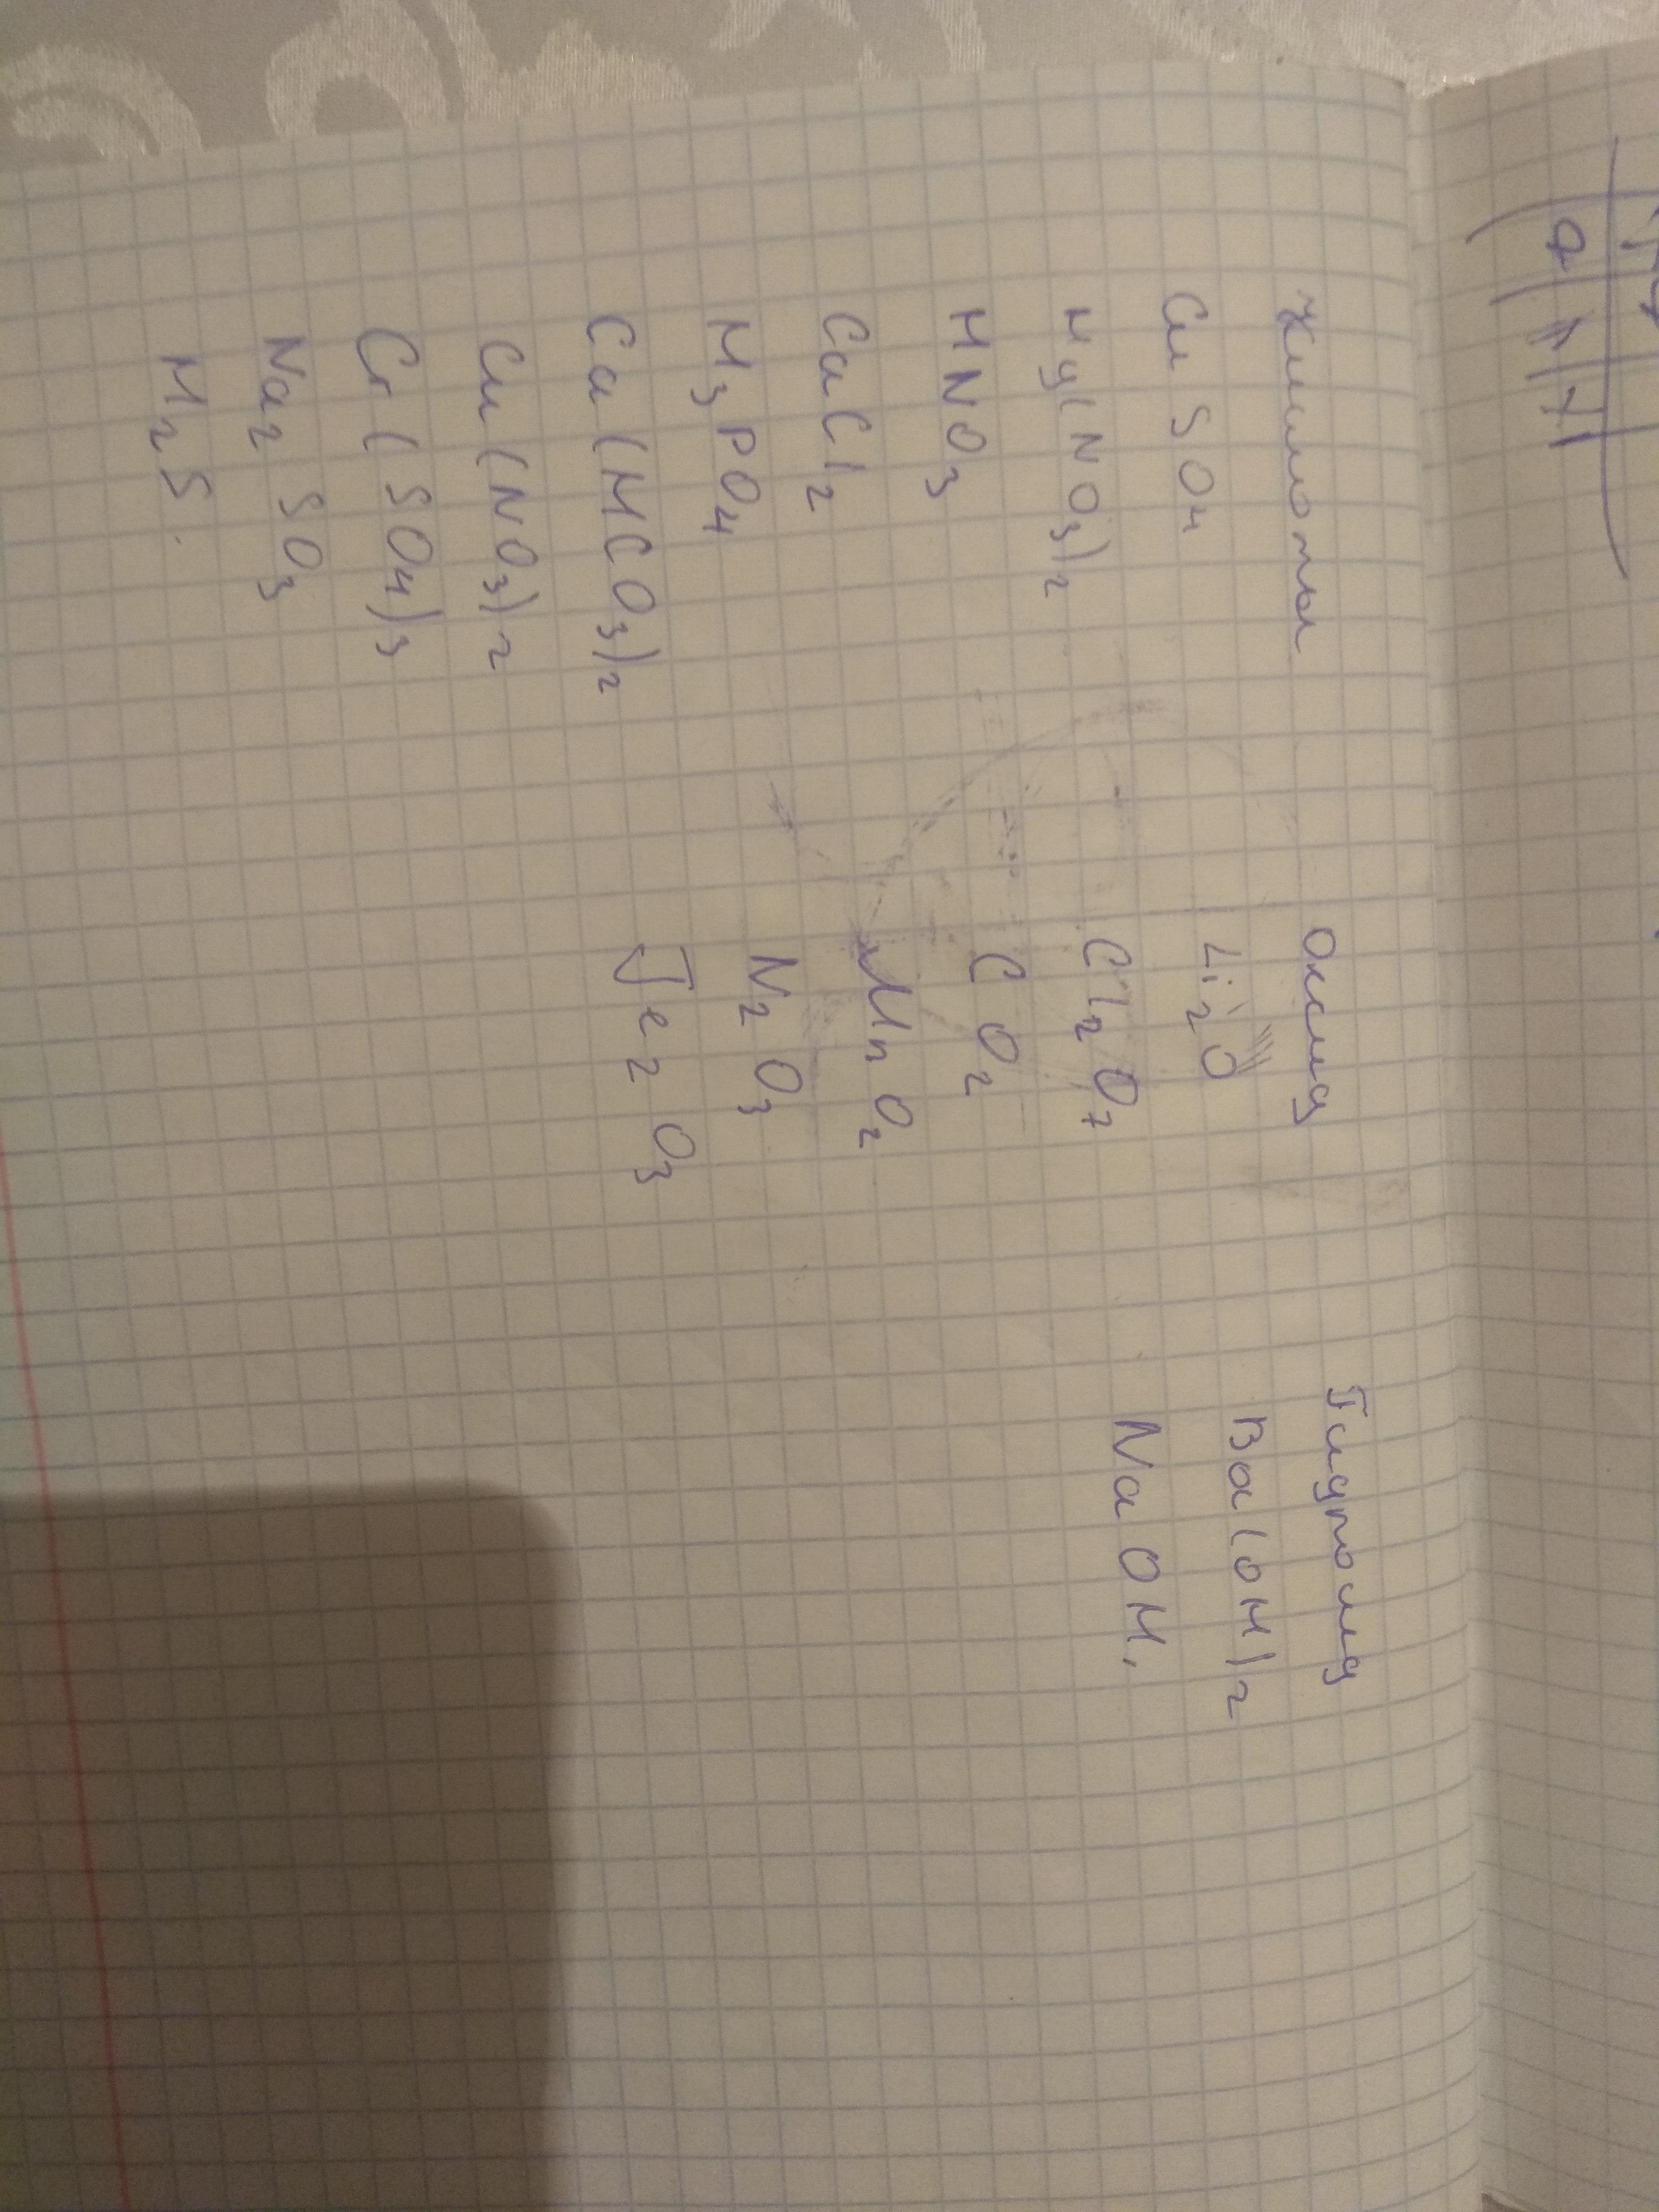 Кислоты
CuSO4
Hg(NO3)2
HNO3
CaCl2
H3PO4
Ca(HCO3)2
Cu(NO3)2
Cr(SO4)3
Na2SO3
H2S.
Оксид
Li2O
Cl2O7
CO2
MnO2
N2O3
Fe2O3
Гидроксид
Ba(OH)2
NaOH,